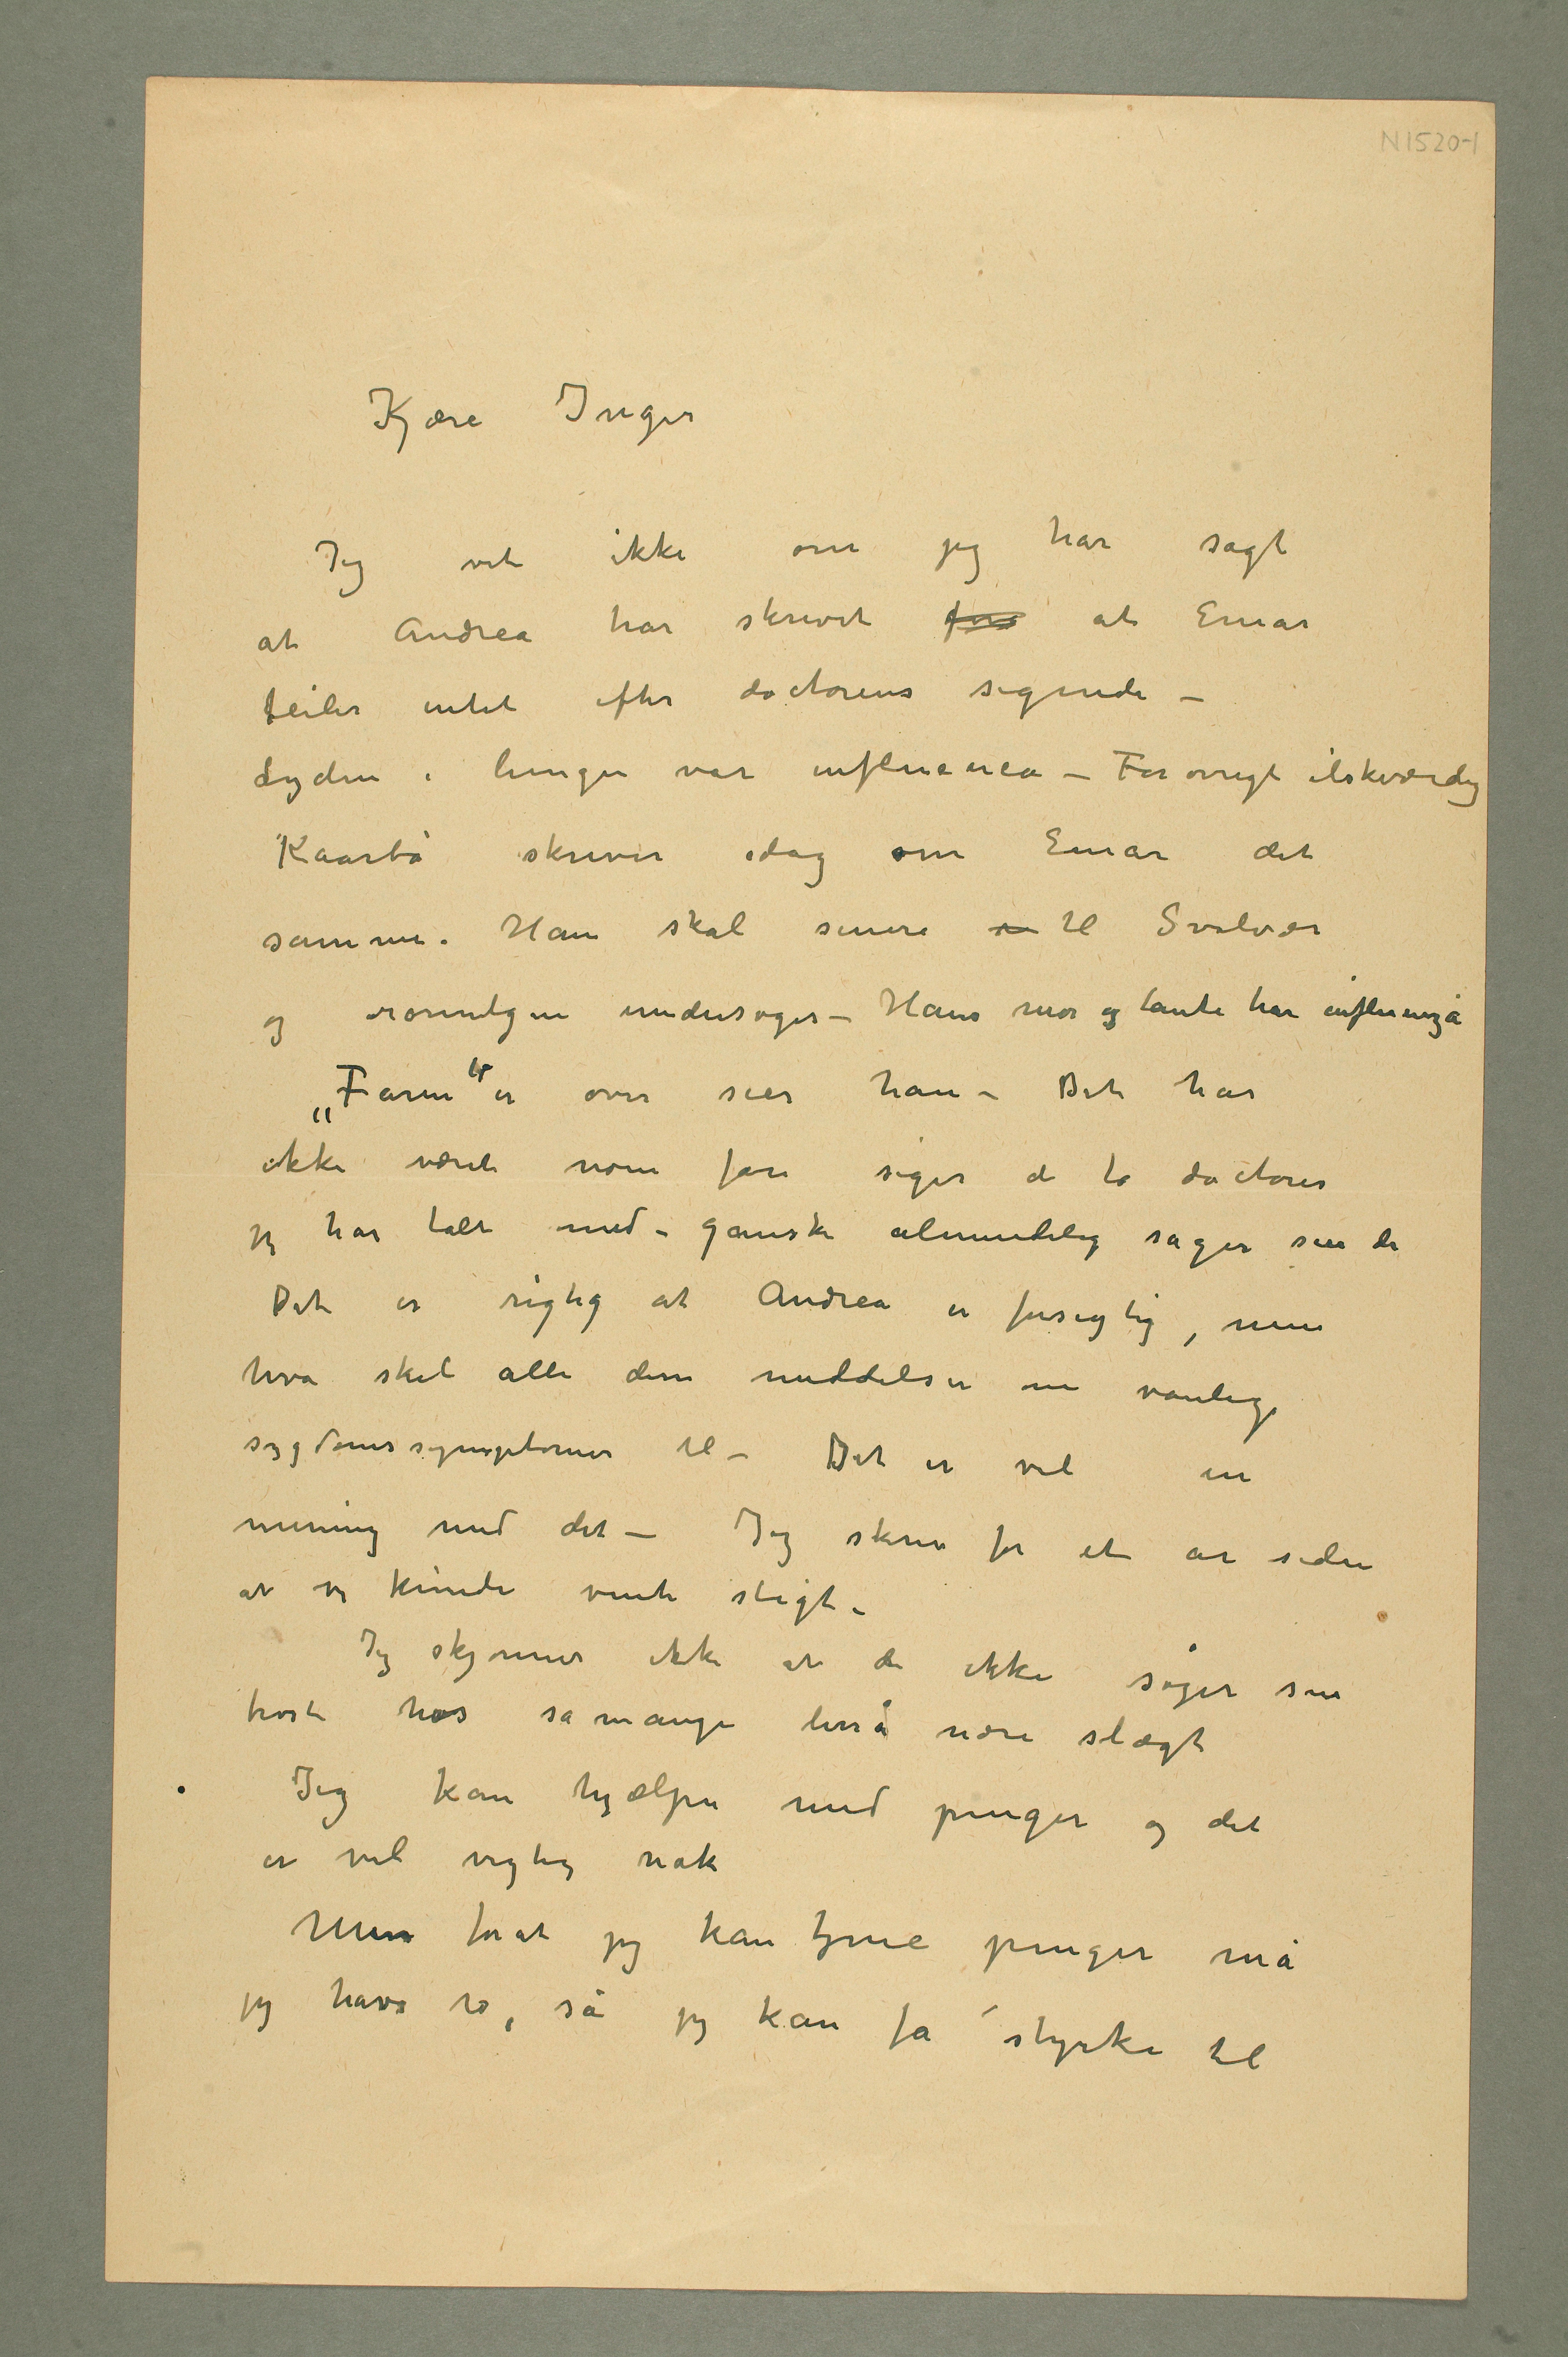 N1520-1
Kjære Inger
Jeg vet ikke om jeg har sagt
at Andrea har skrevet at Einar
feiler intet efter doctorens sigende –
Lyden i lungen var influenca – Forøvrigt elskværdig
Kaarbø skriver idag om Einar det
samme. Han skal senere til Svolvær
og røntgen undersøges – Hans mor og tante har influenza
„Faren“ er over sier han – Det har
ikke været noen fare siger de to doctorer
jeg har talt med – ganske almindelig sager sier de
Det er rigtig at Andrea er forsigtig, men
hva skal alle disse meddelelser om vanlige
sygdomssymptomer til – Det er vel en
mening med det – Jeg skrev for et år siden
at vi kunde vente sligt –
Jeg skjønner ikke at de ikke søger sin
trøst hos så mange nære slægt
Jeg kan hjælpe med penger og det
er vel vigtig nok
Men forat jeg kan tjene penger må
jeg have ro, så jeg kan få styrke til